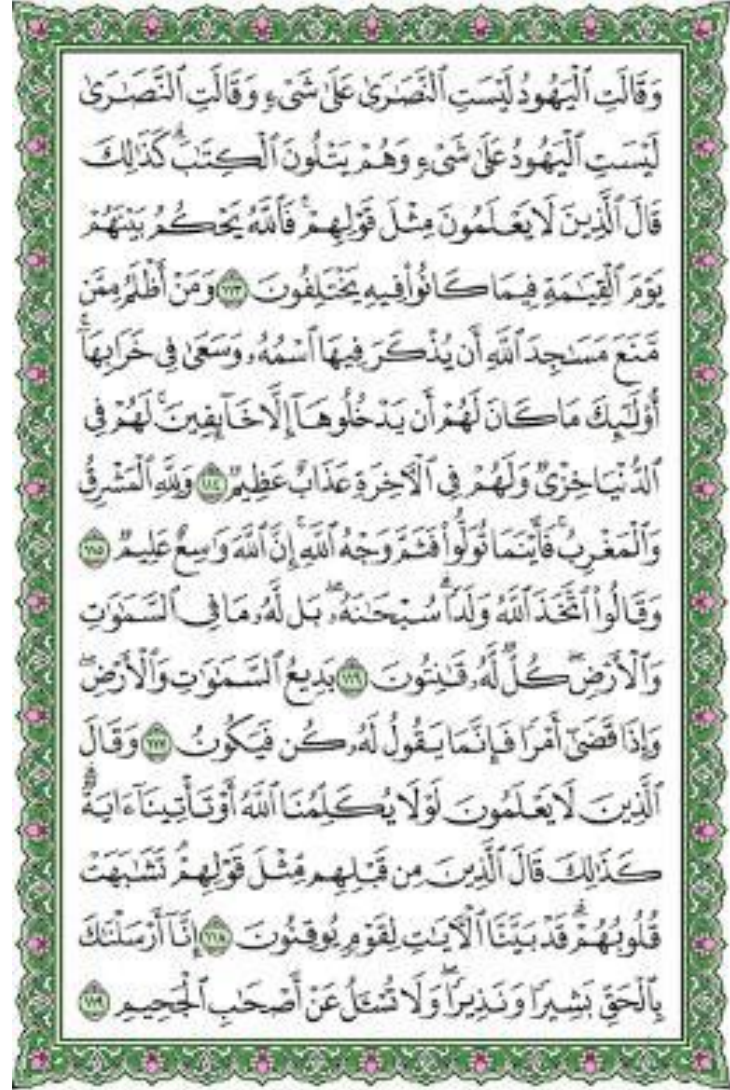 وَقَالَتِ ٱلْيَهُودُ لَيْسَتِ ٱلنَّصَٰرَىٰ عَلَىٰ شَىْءٍ وَقَالَتِ ٱلنَّصَٰرَىٰ
لَيْسَتِ ٱلْيَهُودُ عَلَىٰ شَىْءٍ وَهُمْ يَتْلُونَ ٱلْكِتَٰبَ ۗ كَذَٰلِكَ
قَالَ ٱلَّذِينَ لَا يَعْلَمُونَ مِثْلَ قَوْلِهِمْ ۚ فَٱللَّهُ يَحْكُمُ بَيْنَهُمْ
يَوْمَ ٱلْقِيَٰمَةِ فِيمَا كَانُوا۟ فِيهِ يَخْتَلِفُونَ ١١٣ وَمَنْ أَظْلَمُ مِمَّن
مَّنَعَ مَسَٰجِدَ ٱللَّهِ أَن يُذْكَرَ فِيهَا ٱسْمُهُۥ وَسَعَىٰ فِى خَرَابِهَآ ۚ
أُو۟لَٰٓئِكَ مَا كَانَ لَهُمْ أَن يَدْخُلُوهَآ إِلَّا خَآئِفِينَ ۚ لَهُمْ فِى
ٱلدُّنْيَا خِزْىٌ وَلَهُمْ فِى ٱلْءَاخِرَةِ عَذَابٌ عَظِيمٌ ١١٤ وَلِلَّهِ ٱلْمَشْرِقُ
وَٱلْمَغْرِبُ ۚ فَأَيْنَمَا تُوَلُّوا۟ فَثَمَّ وَجْهُ ٱللَّهِ ۚ إِنَّ ٱللَّهَ وَٰسِعٌ عَلِيمٌ ١١٥
وَقَالُوا۟ ٱتَّخَذَ ٱللَّهُ وَلَدًا ۗ سُبْحَٰنَهُۥ ۖ بَل لَّهُۥ مَا فِى ٱلسَّمَٰوَٰتِ
وَٱلْأَرْضِ ۖ كُلٌّ لَّهُۥ قَٰنِتُونَ ١١٦ بَدِيعُ ٱلسَّمَٰوَٰتِ وَٱلْأَرْضِ ۖ
وَإِذَا قَضَىٰٓ أَمْرًا فَإِنَّمَا يَقُولُ لَهُۥ كُن فَيَكُونُ ١١٧ وَقَالَ
ٱلَّذِينَ لَا يَعْلَمُونَ لَوْلَا يُكَلِّمُنَا ٱللَّهُ أَوْ تَأْتِينَآ ءَايَةٌ ۗ
كَذَٰلِكَ قَالَ ٱلَّذِينَ مِن قَبْلِهِم مِّثْلَ قَوْلِهِمْ ۘ تَشَٰبَهَتْ
قُلُوبُهُمْ ۗ قَدْ بَيَّنَّا ٱلْءَايَٰتِ لِقَوْمٍ يُوقِنُونَ ١١٨ إِنَّآ أَرْسَلْنَٰكَ
بِٱلْحَقِّ بَشِيرًا وَنَذِيرًا ۖ وَلَا تُسْـَٔلُ عَنْ أَصْحَٰبِ ٱلْجَحِيمِ ١١٩